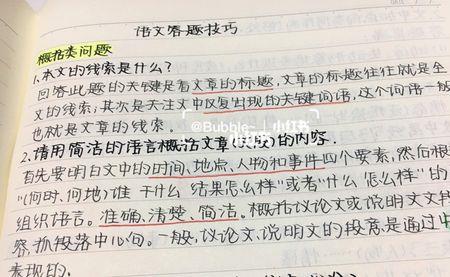 语文答题技巧
概括类问题
1.本文的线索是什么?
回答此题的关键是看文章的标题,文章的标题往往就是全
文的线索;其次是关注文中反复出现的关键词语,这个词语一般
也就是文章的线索.
@Bubble- 小红书
2.请用简洁的语言概括文章(段)的内容.
首先要明白文中的时间、地点、人物和事件四个要素,然后根
"(何时、何地)谁 干什么 结果怎么样"或者"什么 怎么样"的
组织语言。准确、清楚、简洁。概括议论文或说明文文段
察,抓段落中心句。一般,议论文、说明文的段意是通过中
表现的.